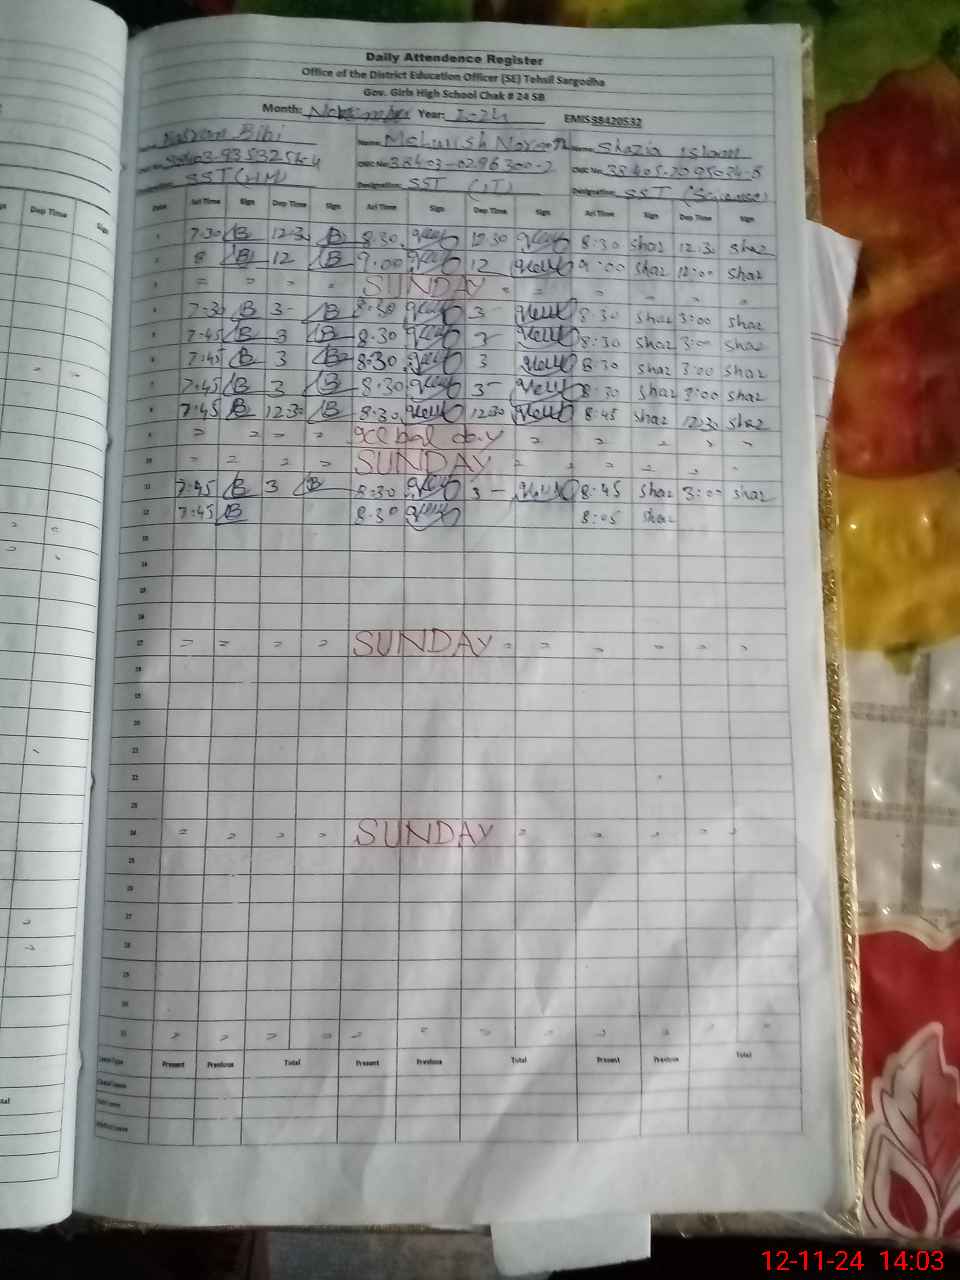 Daily Attendence Register
Office of the District Education Officer (SE) Tehsil Sargodha
Gov. Girls High School Chak # 24 SB
Month: November Year: 2024 EMIS 38420532
Bibi Name: Mehwish Name: Shazia Islam
CNIC No. 38403-0296300-2 CNIC No.
Designation: SST (HM) Designation: SST (IT) Designation: SST (Science)
Date Arl Time Sign Dep Time Sign Arl Time Sign Dep Time Sign Arl Time Sign Dep Time Sign
1 7.30 B 12.30 B 8.30 12.30 8:30 shaz 12:30 shaz
2 8 B 12 B 9.00 12 9:00 shaz 12:00 shaz
3 SUNDAY
4 7.30 B 3- B 8.30 3- 8:30 shaz 3:00 shaz
5 7.45 B 3 B 8.30 3- 8:30 shaz 3:00 shaz
6 7.45 B 3 B 8.30 3 8:30 shaz 3:00 shaz
7 7.45 B 3 B 8.30 3- 8:30 shaz 3:00 shaz
8 7.45 B 12.30 B 8.30 12.30 8:45 shaz 12:30 shaz
9 day
10 SUNDAY
11 7.45 B 3 B 8.30 3- 8:45 shaz 3:00 shaz
12 7.45 B 8.30 8:05 shaz
13
14
15
16
17 SUNDAY
18
19
20
21
22
23
24 SUNDAY
25
26
27
28
29
30
31
Leave Type Present Previous Total Present Previous Total Present Previous Total
Dep Time Sign
12-11-24 14:03